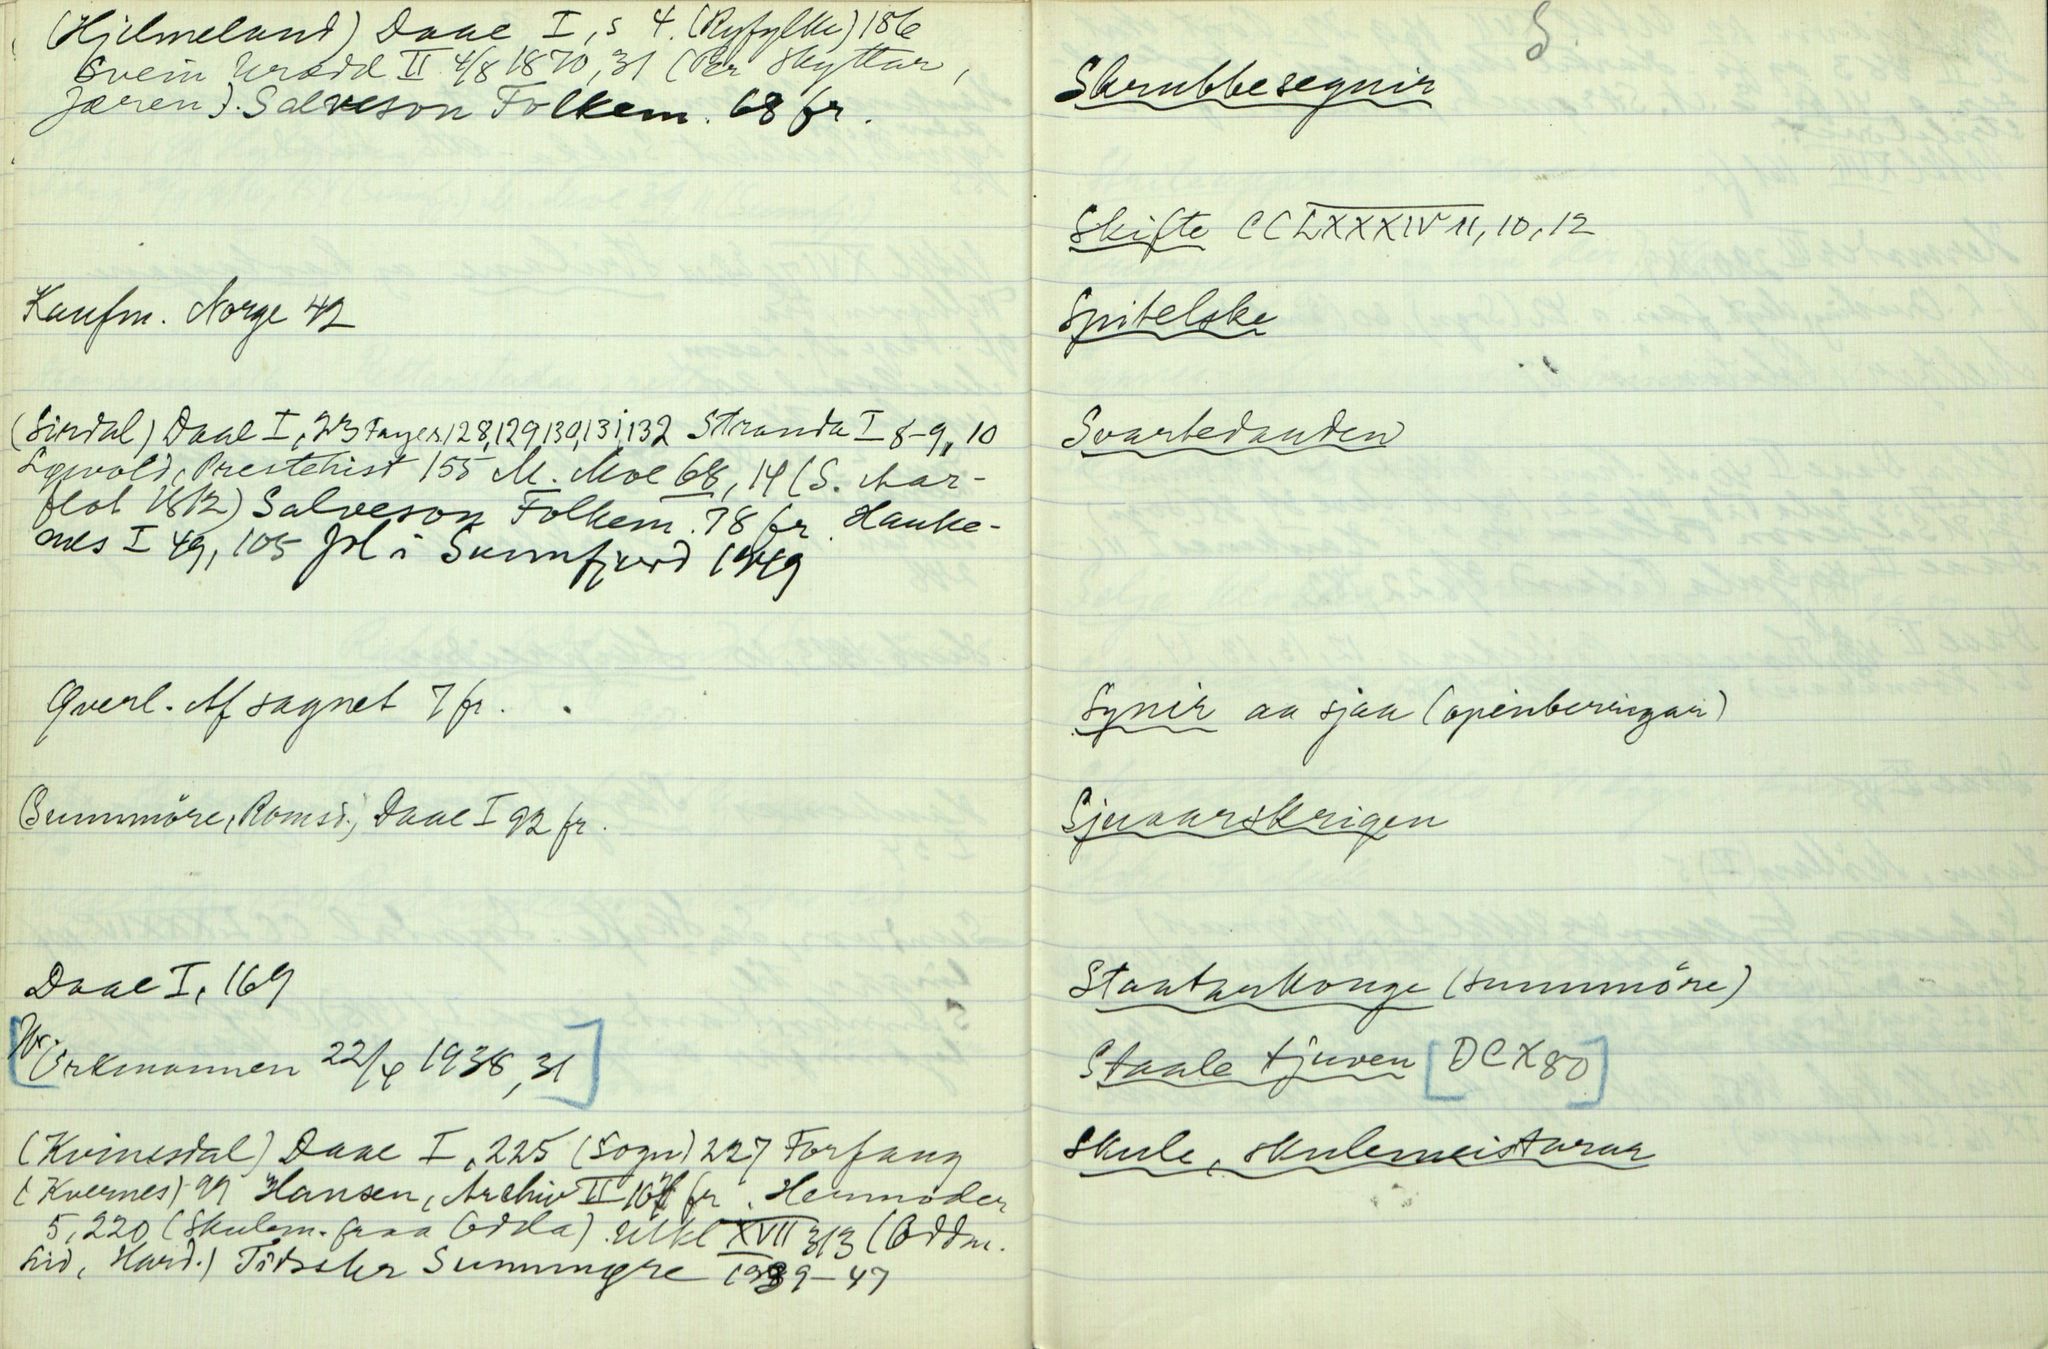 (Hjelmeland) Daae I, s 4. (Ryfylke) 186
Svein Urædd II 4/8 1870, 31 (Per Skyttar,
Jæren). Salveson Folkem. 68 fr.
Kaufm. Norge 42
(Sirdal) Daae I, 23 Fayes 128, 129, 130, 131, 132 Stranda I 8-9, 10
Prestehist 155 M. Moe 68, 14 (S. Aar-
flot 1812) Salveson Folkem. 78 fr. Hauke-
nes I 49, 105 Jol i Sunnfjord 1949
Qverl. Af sagnet 7 fr.
(Sunnmöre, Romsd.) Daae I 92 fr.
Daae I, 169
[Nr. Orkmannen 22/4 1938, 31]
(Kvinesdal) Daae I, 225 (Sogn) 227 Forfang
(Kvernes) 99 Hansen, Archiv II fr. Hermoder
5, 220 (Skulem. fraa Odda). Utkl XVII 313 (Oddm.
Lid, Hard.) Tidsskr Sunnmøre 1939-47
S
Skrubbesegnir
Skifte CCLXXXIV 11, 10, 12
Spitelske
Svartedauden
Synir aa sjaa (openberringar)
Sjuaarskrigen
Staatarkonge (sunnmöre)
Staale tjuven [DCX 80]
Skule, skulemeistarar